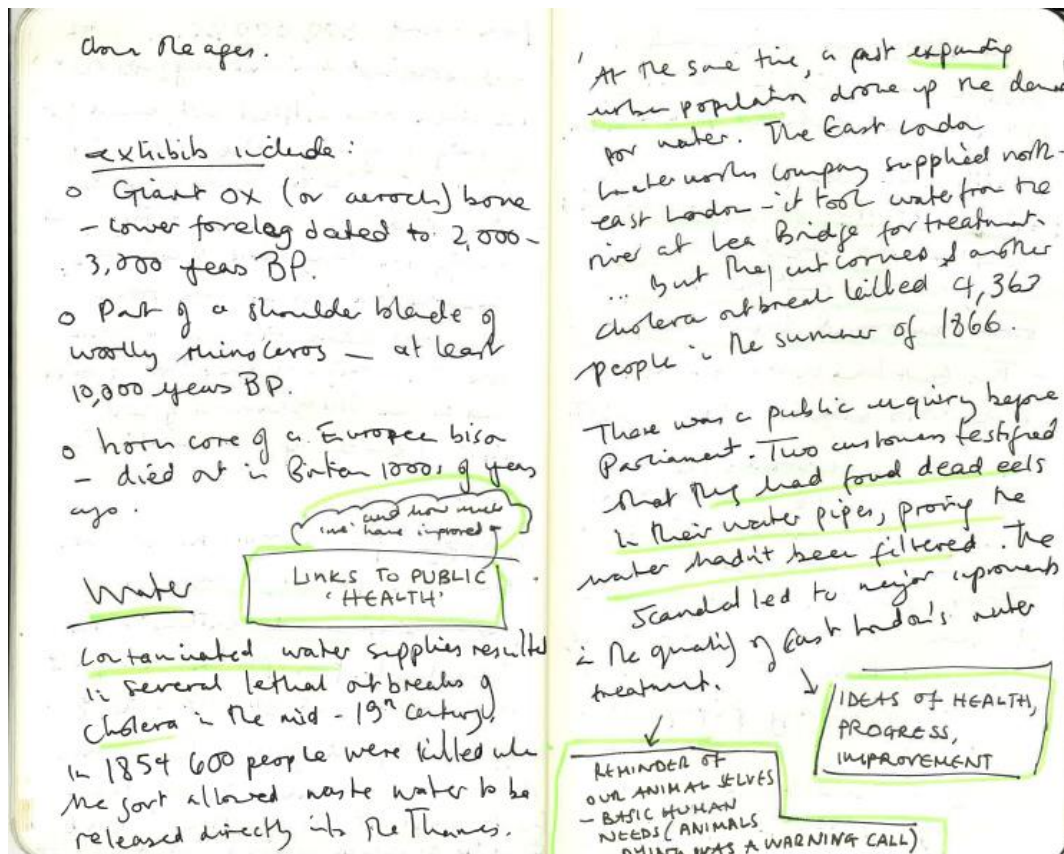 down the ages.
exhibits include:
o Giant ox (or aeroch) bone
- lower foreleg dated to 2,000 -
3,000 years BP.
o Part of a shoulder blade of
woolly rhinoceros - at least
10,000 years BP.
o horn core of a European bison
- died out in Britain 1000s of years
ago.
and how much
'we' have improved
LINKS TO PUBLIC
'HEALTH'
Water
Contaminated water supplies resulted
in several lethal outbreaks of
cholera in the mid-19th century.
In 1854 600 people were killed when
the govt allowed waste water to be
released directly into the Thames.
'At the same time, a fast expanding
urban population drove up the demand
for water. The East London
waterworks company supplied north-
east London - it took water from the
river at Lea Bridge for treatment
... but they cut corners & another
cholera outbreak killed 4,363
people in the summer of 1866.
There was a public enquiry before
Parliament. Two customers testified
that they had found dead eels
in their water pipes, proving the
water hadn't been filtered. The
scandal led to major improvements
in the quality of East London's water
treatment.
IDEAS OF HEALTH,
PROGRESS,
IMPROVEMENT
REMINDER OF
OUR ANIMAL SELVES
- BASIC HUMAN
NEEDS (ANIMALS
DYING WAS A WARNING CALL)